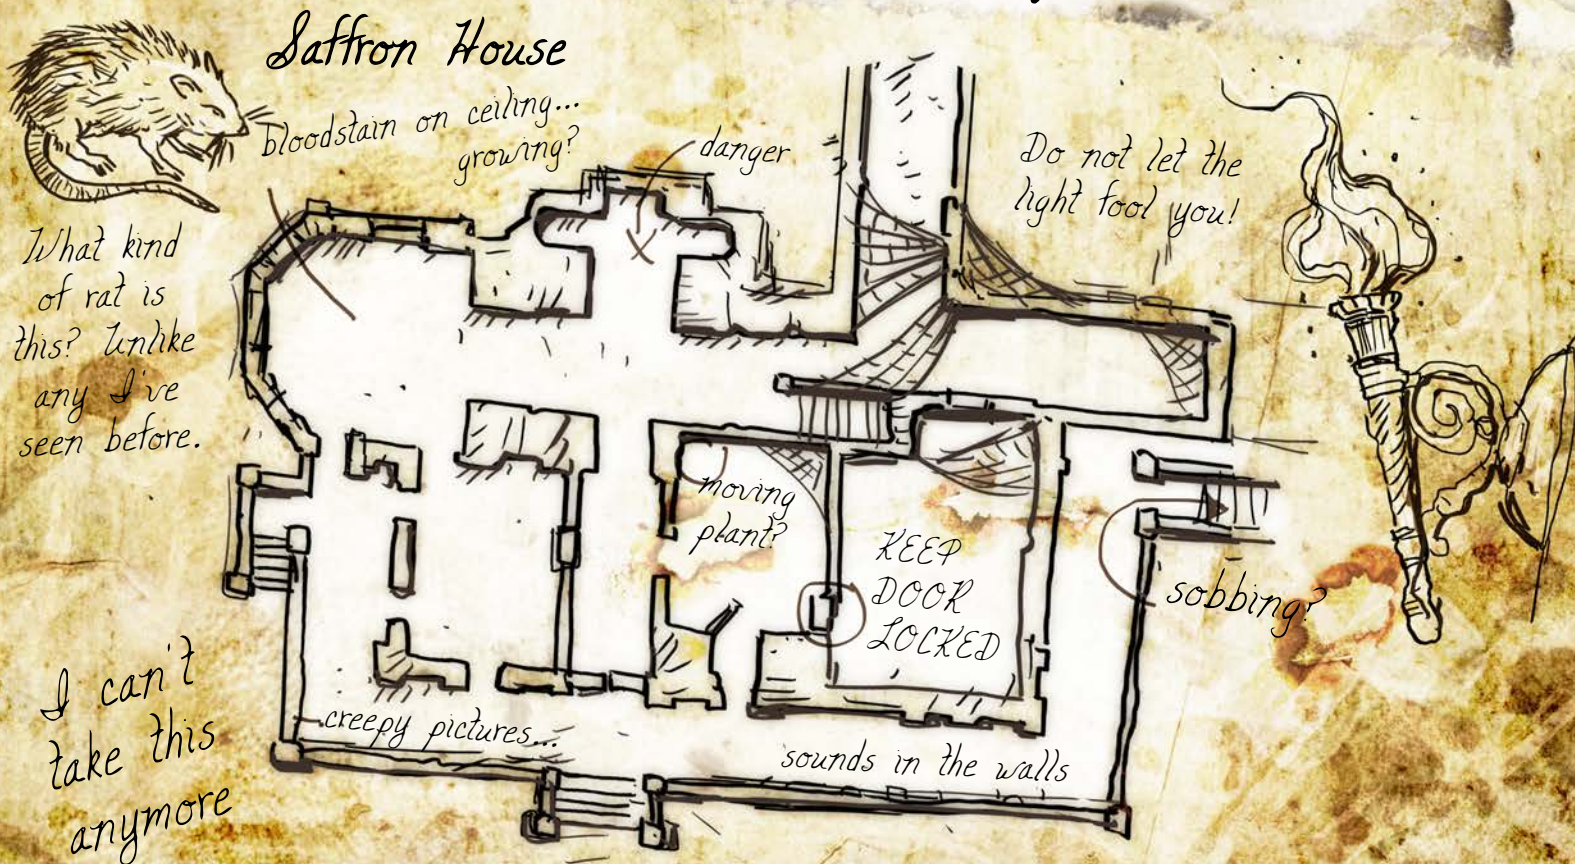 Saffron House
bloodstain on ceiling...
growing?
danger
Do not let the
light fool you!
What kind
of rat is
this? Unlike
any I've
seen before.
moving
plant?
KEEP
DOOR
LOCKED
sobbing?
I can't
take this
anymore
creepy pictures...
sounds in the walls